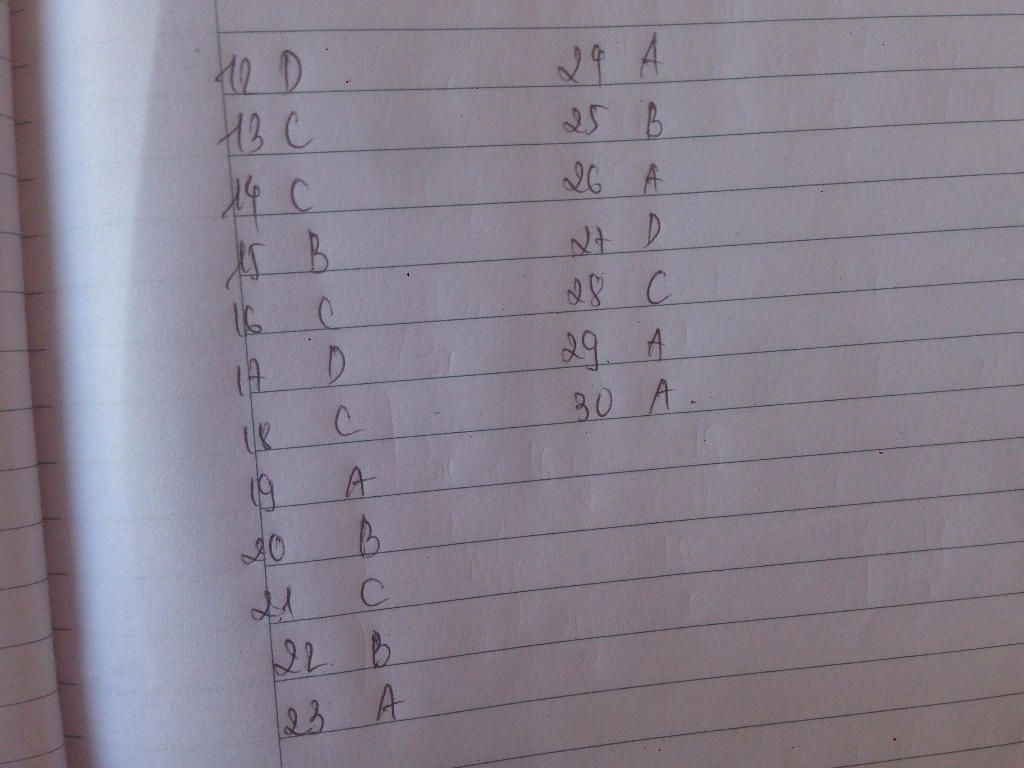 12 D
13 C
14 C
15 B
16 C
17 D
18 C
19 A
20 B
21 C
22 B
23 A
24 A
25 B
26 A
27 D
28 C
29 A
30 A.